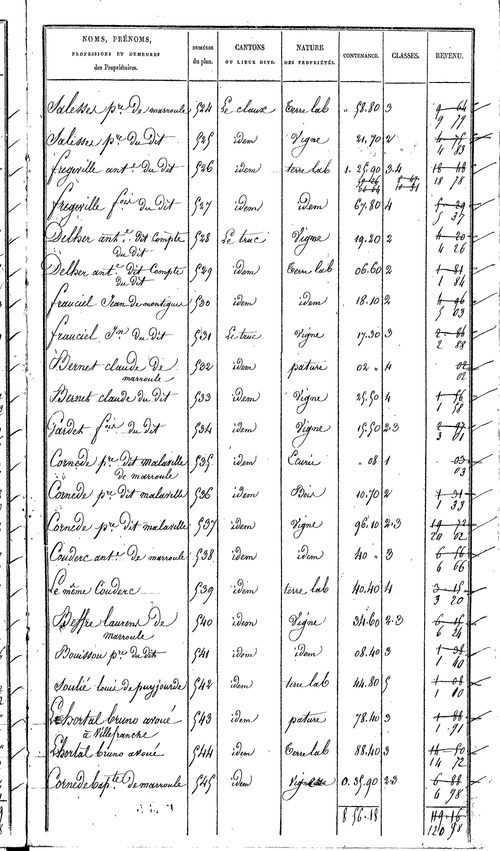 NOMS, PRÉNOMS, PROFESSIONS ET DEMEURES des Propriétaires. NUMÉROS du plan. CANTONS OU LIEUX DITS. NATURE DES PROPRIÉTÉS. CONTENANCE. CLASSES. REVENU.
Salesses pre de marroule 524 Le claux terre lab " 58.80 3 9 64
9 77
Salesses pre du dit 525 idem Vigne 21.70 2 4 75
4 83
fregeville ante du dit 526 idem terre lab 1. 25.90 3.4 18 48
18 78
fregeville fois du dit 527 idem idem 67.80 4 5 29
5 37
Delher ante dit Compte 528 Le truc Vigne 19.20 2 4 20
du dit 4 26
Delher ante dit Compte 529 idem terre lab 06.60 2 1 81
du dit 1 84
frauciel Jean de montegue 530 idem idem 18.10 2 4 96
5 03
frauciel Jn du dit 531 Le truc Vigne 17.30 3 2 88
2 88
Bernet claude de 532 idem pature 02 " 4 02
marroule 02
Bernet claude du dit 533 idem Vigne 25.50 4 1 56
1 58
Gardet fois du dit 534 idem Vigne 15.50 2.3 2 97
3 01
Cornede pre dit malavelle 535 idem Ecurie " 08 1 03
de marroule 03
Cornede pre dit malavelle 536 idem Bois 10.70 2 1 31
1 33
Cornede pre dit malavelle 537 idem Vigne 96.10 2.3 19 72
20 02
Couderc ante de marroule 538 idem idem 40 " 3 6 56
6 66
Le même Couderc 539 idem terre lab 40.40 4 3 15
3 20
Beffre laurens de 540 idem Vigne 34.60 2.3 6 15
marroule 6 24
Bouissou pre du dit 541 idem idem 08.40 3 1 38
1 40
Soulié louis de puyjourde 542 idem terre lab 44.80 5 1 08
1 10
Lhortal bruno avoué 543 idem pature 78.40 3 1 88
à Villefranche 1 91
Lhortal bruno avoué 544 idem terre lab 88.40 3 14 50
14 72
Cornede bapte de marroule 545 idem Vigne 0. 35.90 2.3 6 88
6 98
8 56.18 119 16
120 98